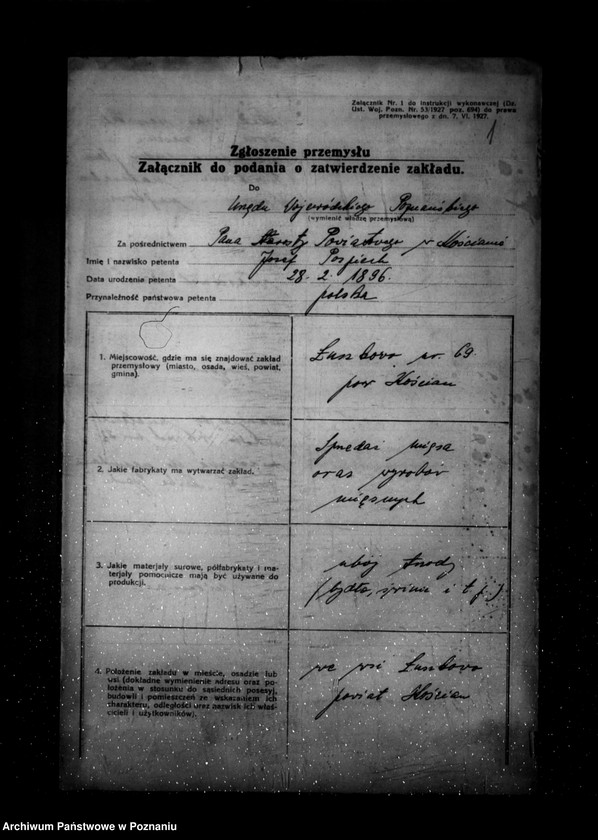 Załącznik Nr. 1 do instrukcji wykonawczej (Dz.
Ust. Woj. Pozn. Nr. 53/1927 poz. 694) do prawa
przemysłowego z dn. 7. VI. 1927.
1
Zgłoszenie przemysłu
Załącznik do podania o zatwierdzenie zakładu.
Do
Urzędu Wojewódzkiego Poznańskiego
(wymienić władzę przemysłową)
Za pośrednictwem Pana Starosty Powiatowego w Kościanie
Imię i nazwisko petenta Józef Pospiech
Data urodzenia petenta 28. 2. 1896.
Przynależność państwowa petenta polska
1. Miejscowość, gdzie ma się znajdować zakład
przemysłowy (miasto, osada, wieś, powiat,
gmina).
Łuszkowo nr. 69
pow Kościan
2. Jakie fabrykaty ma wytwarzać zakład.
Sprzedaż mięsa
oraz wyrobów
mięsnych
3. Jakie materjały surowe, półfabrykaty i ma-
terjały pomocnicze mają być używane do
produkcji.
ubój trzody
(bydła, świnie i t p.)
4. Położenie zakładu w mieście, osadzie lub
wsi (dokładne wymienienie adresu oraz po-
łożenia w stosunku do sąsiednich posesyj,
budowli i pomieszczeń ze wskazaniem ich
charakteru, odległości oraz nazwisk ich właś-
cicieli i użytkowników).
we wsi Łuszkowo
powiat Kościan
Archiwum Państwowe w Poznaniu